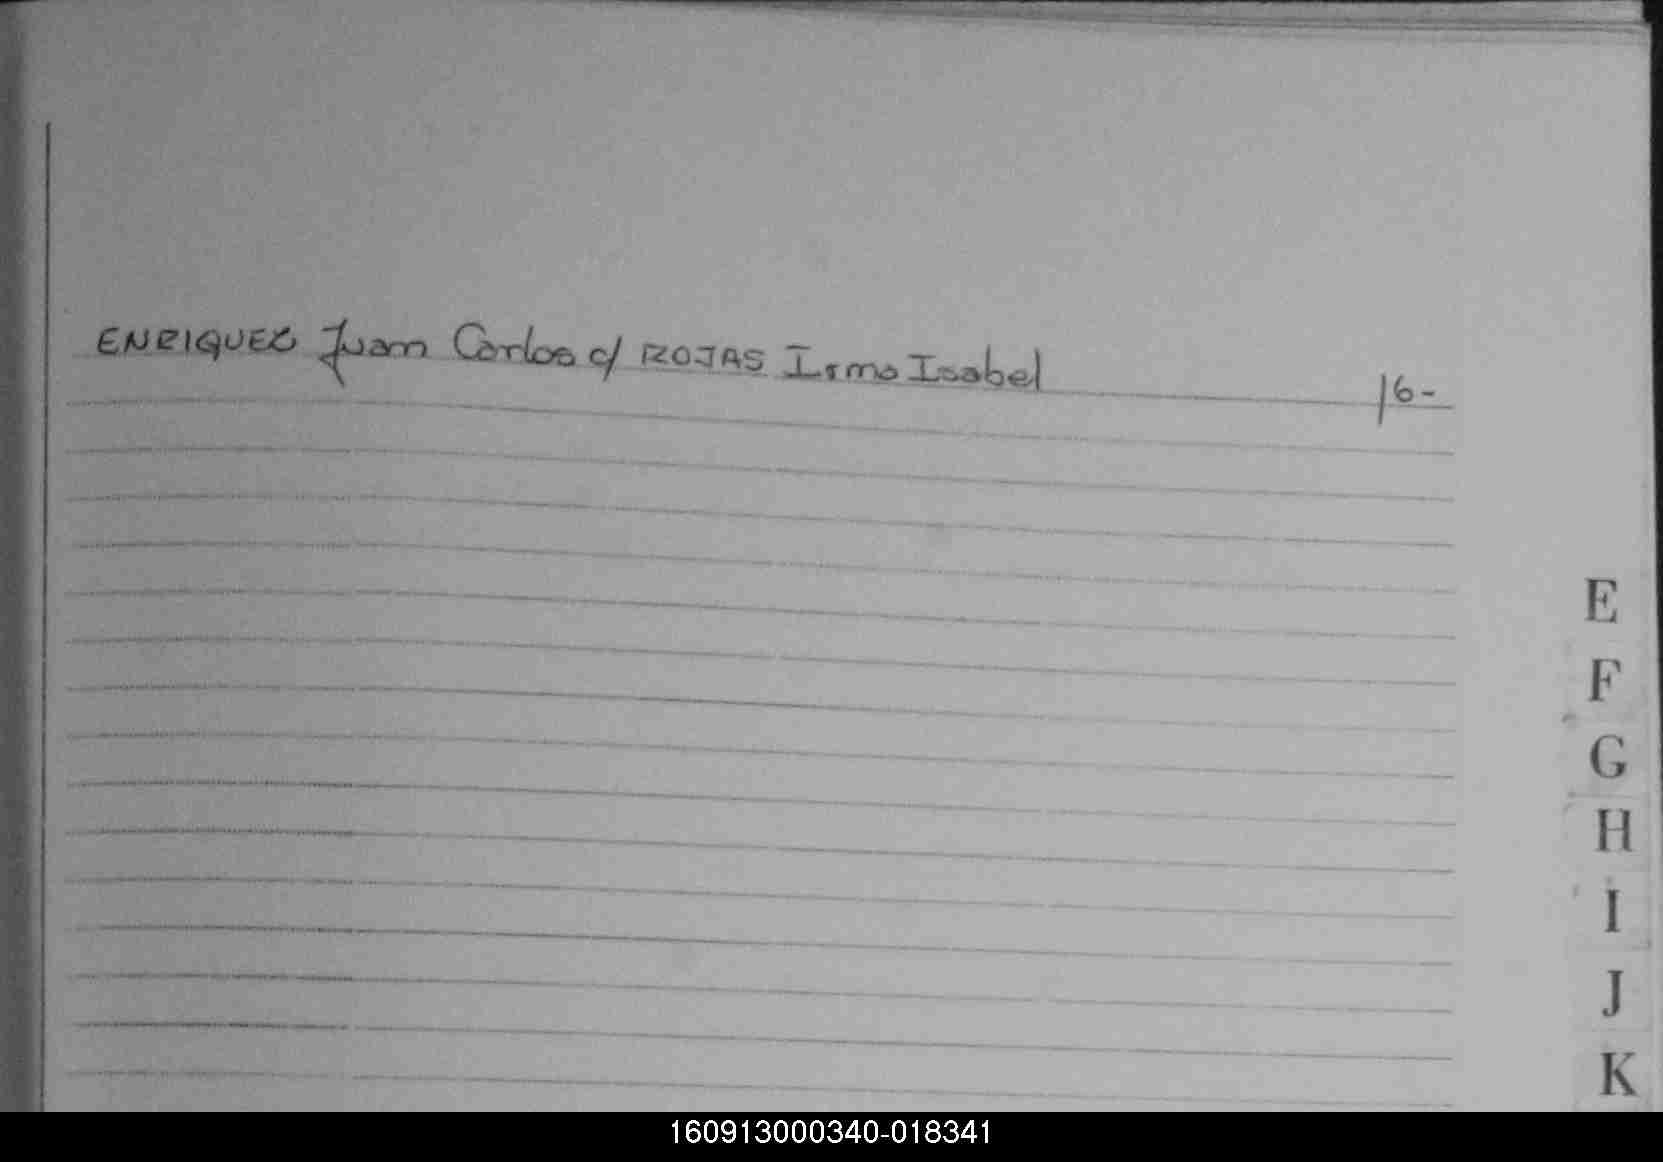 ENRIQUEZ Juan Carlos c/ ROJAS Irma Isabel 16-
E
F
G
H
I
J
K
160913000340-018341